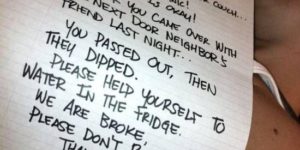 COUCH...
IS OKAY!
YOU CAME OVER WITH
NEXT DOOR NEIGHBOR'S
FRIEND LAST NIGHT...
YOU PASSED OUT, THEN
THEY DIPPED.
PLEASE HELP YOURSELF TO
WATER IN THE FRIDGE.
WE ARE BROKE,
PLEASE DON'T